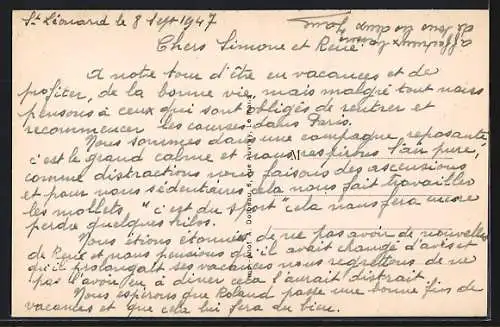 St Léonard le 8 Sept 1947
Chers Simone et René
A notre tour d'être en vacances et de
profiter, de la bonne vie, mais malgré tout nous
pensons à ceux qui sont obligés de rentrer et
recommencer les courses dans Paris.
Nous sommes dans une campagne reposante
c'est le grand calme et nous respirons l'air pure,
comme distractions nous faisons des ascensions
et pour nous sédentaires cela nous fait travailler
les mollets "c'est du sport" cela nous fera encore
perdre quelques kilos.
Nous étions étonnés de ne pas avoir de nouvelles
de René et nous pensions qu'il avait changé d'avis et
qu'il prolongait ses vacances nous regrettons de ne
pas l'avoir eu à diner cela l'aurait distrait.
Nous espérons que Roland passe une bonne fin de
vacances et que cela lui fera du bien.
affectueux
de nous deux